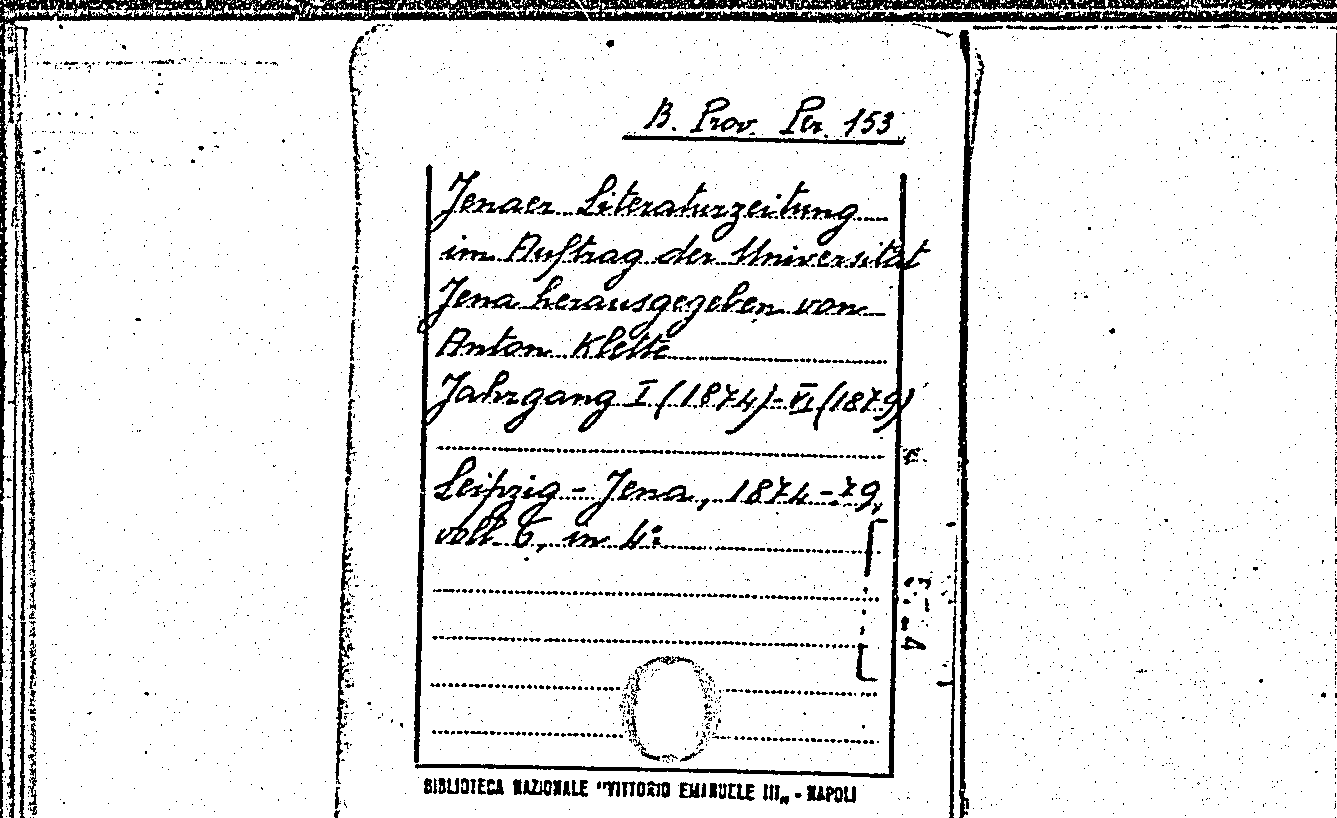 B. Prov. Per. 153
Jenaer Literaturzeitung
im Auftrag der Universität
Jena herausgegeben von
Anton Klette
Jahrgang I (1874)-VI (1879)
Leipzig - Jena, 1874-79,
voll. 6, in 4°.
BIBLIOTECA NAZIONALE "VITTORIO EMANUELE III„ - NAPOLI